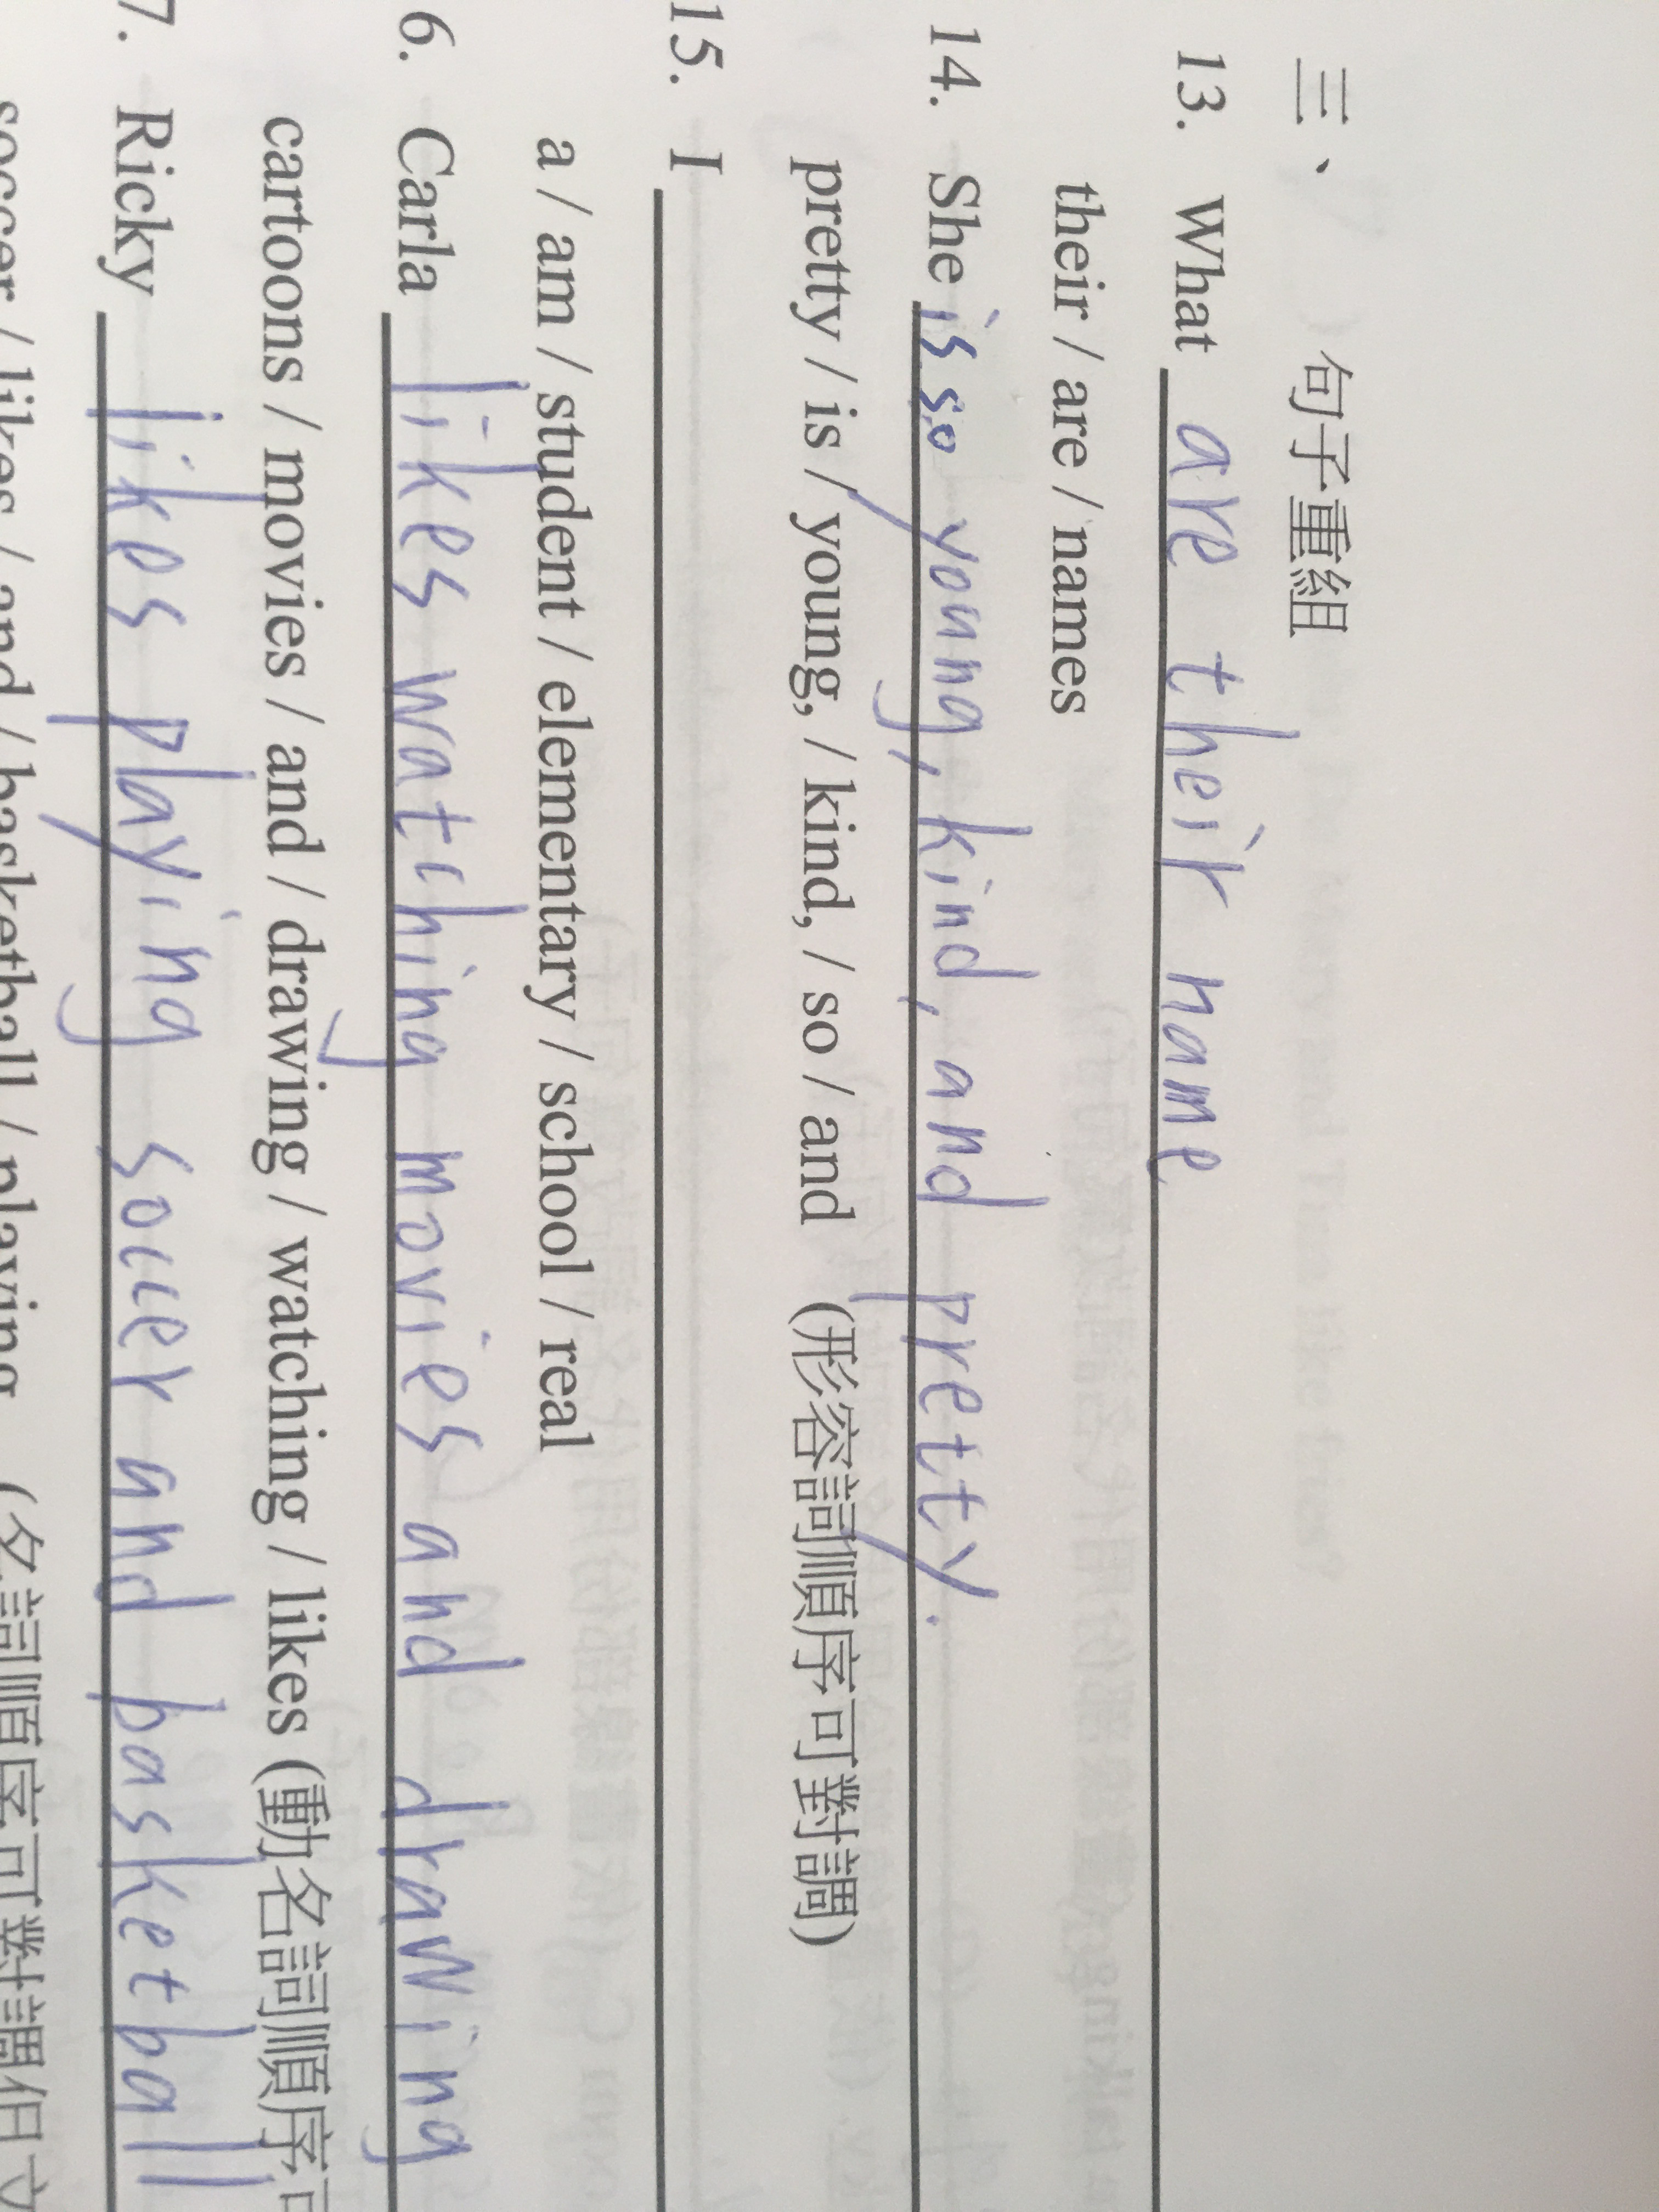 三、句子重組
13. What are their name
their / are / names
14. She is so young, kind, and pretty.
pretty / is / young, / kind, / so / and (形容詞順序可對調)
15. I
a / am / student / elementary / school / real
6. Carla likes watching movies and drawing
cartoons / movies / and / drawing / watching / likes (動名詞順序可
7. Ricky likes playing soccer and basketball
soccer / likes / and / basketball / playing (名詞順序可對調但